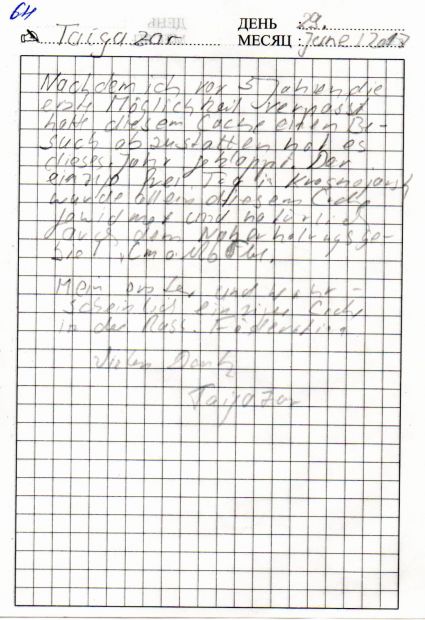 64
Taigazar ДЕНЬ 29.
МЕСЯЦ : June / 2013
Nachdem ich vor 5 Jahren die
erste Möglichkeit verpasst
hatte diesem Cache einen Be-
such abzustatten hat es
dieses Jahr geklappt. Der
einzig frei. Tag in Krasnojarsk
wurde allein diesem Cache
gewidmet und natürlich
auch dem Naherholungsge-
biet
Mein erster und wahr-
scheinlich einzige Cache
in der Russ. Föderation
Vielen Dank
Taigazar